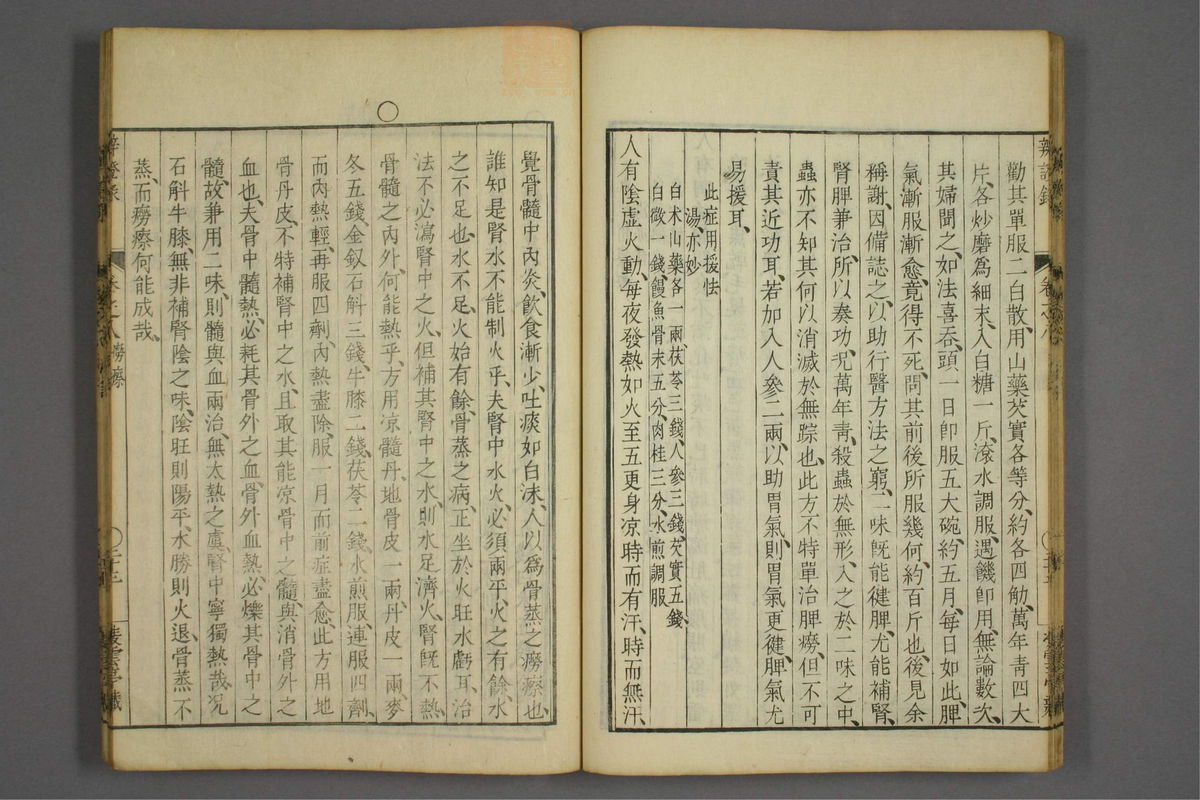 勸其單服二白散、用山藥芡實各等分、約各四觔、萬年青四大
片、各炒磨爲細末、入白糖一斤、滾水調服、遇饑卽用、無論數次、
其婦聞之、如法喜吞、頭一日卽服五大碗、約五月、每日如此、脾
氣漸服漸愈、竟得不死、問其前後所服幾何、約百斤也、後見余
稱謝、因備誌之、以助行醫方法之窮、二味旣能健脾、尤能補腎、
腎脾兼治、所以奏功、况萬年青、殺蟲於無形、入之於二味之中、
蟲亦不知其何以消滅於無踪也、此方不特單治脾癆、但不可
責其近功耳、若加入人參二兩、以助胃氣、則胃氣更健、脾氣尤
易援耳、
此症用援怯
湯、亦妙
白术山藥各一兩、茯苓三錢、人參三錢、芡實五錢、
白薇一錢、鰻魚骨末五分、肉桂三分、水煎調服
人有陰虛火動、每夜發熱如火、至五更身凉、時而有汗、時而無汗、
覺骨髓中內炎、飮食漸少、吐痰如白沫、人以爲骨蒸之癆瘵也、
誰知是腎水不能制火乎、夫腎中水火、必須兩平、火之有餘、水
之不足也、水不足、火始有餘、骨蒸之病、正坐於火旺水虧耳、治
法不必瀉腎中之火、但補其腎中之水、則水足濟火、腎旣不熱、
骨髓之內外、何能熱乎、方用凉髓丹、地骨皮一兩、丹皮一兩、麥
冬五錢、金釵石斛三錢、牛膝二錢、茯苓二錢、水煎服、連服四劑、
而內熱輕、再服四劑、內熱盡除、服一月而前症盡愈、此方用地
骨丹皮、不特補腎中之水、且取其能凉骨中之髓、與消骨外之
血也、夫骨中髓熱、必耗其骨外之血、骨外血熱、必爍其骨中之
髓、故兼用二味、則髓與血兩治、無太熱之虞、腎中寧獨熱哉、况
石斛牛膝、無非補腎陰之味、陰旺則陽平、水勝則火退、骨蒸不
蒸、而癆瘵何能成哉、